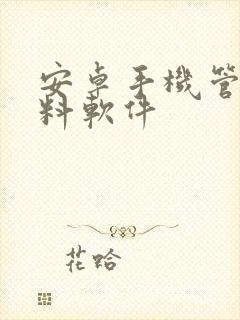 安卓手機管
料軟件
花蛤